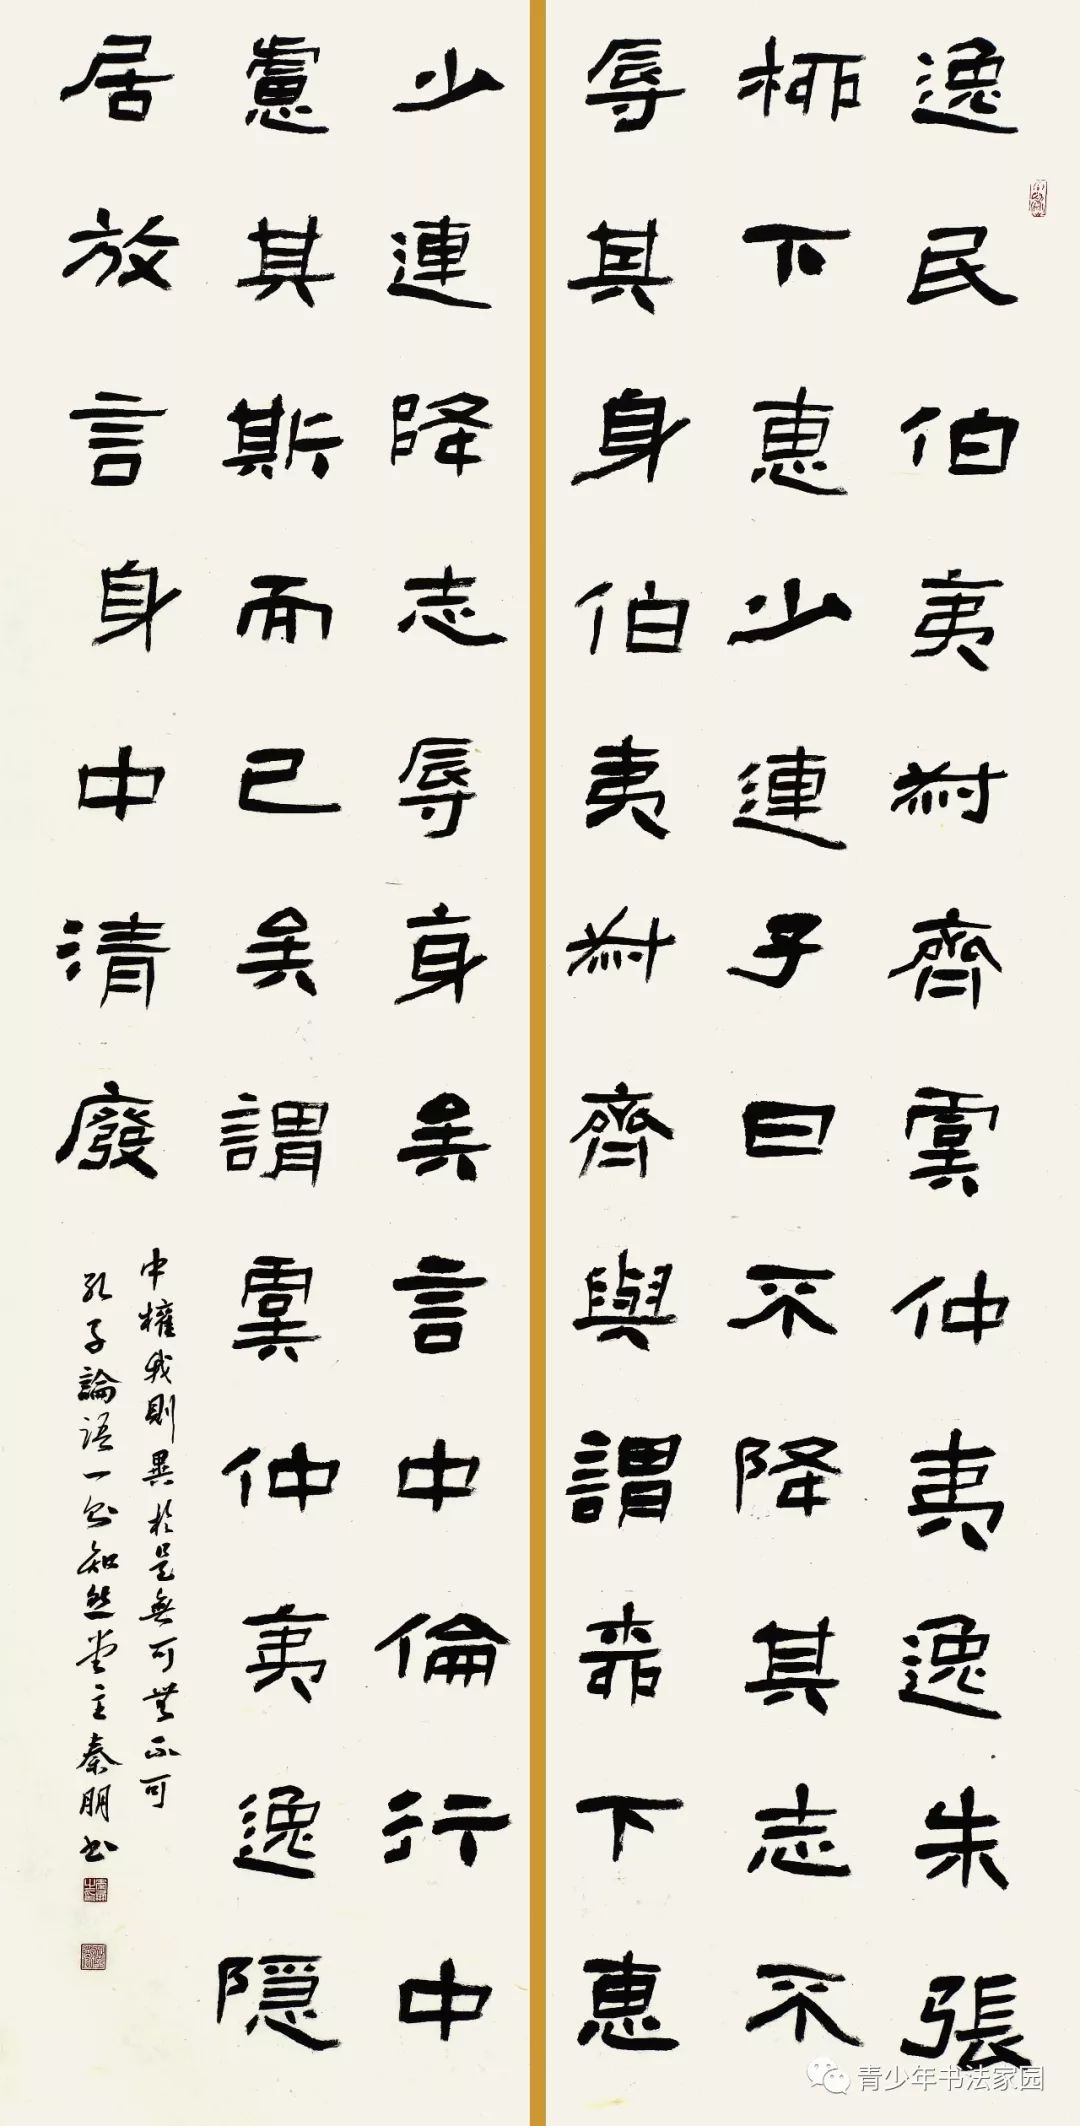 逸民伯夷叔齊虞仲夷逸朱張
柳下惠少連子曰不降其志不
辱其身伯夷叔齊與謂柳下惠
少連降志辱身矣言中倫行中
慮其斯而已矣謂虞仲夷逸隱
居放言身中清廢
中權我則異於是無可無不可
孔子論語一則知然堂主秦朋书
青少年书法家园